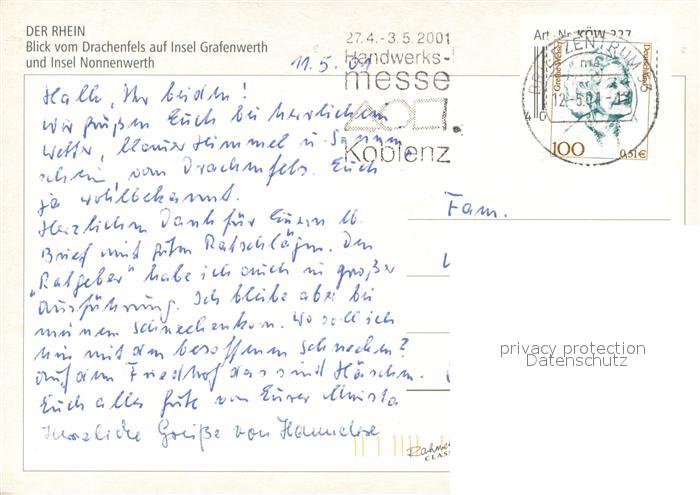 DER RHEIN
Blick vom Drachenfels auf Insel Grafenwerth
und Insel Nonnenwerth
27.4. - 3.5.2001
Handwerks-
messe
Koblenz
Art.-Nr. KÖW 227
BRIEFZENTRUM 56
12.-5.01
Deutschland
100
0,51€
11.5.01
Hallo, Ihr beiden!
wir grüßen Euch bei herrlichem
Wetter, blauer Himmel u. Sonnen
schein, vom Drachenfels. Euch
ja wohlbekannt.
Herzlichen Dank für Euren lb.
Brief mit guten Ratschlägen. Den
„Ratgeber" habe ich auch in großer
Ausführung. Ich bleibe aber bei
meinem Schneckenkorn. Wo soll ich
hin mit den besoffenen Schnecken?
Auf dem Friedhof das sind Häschen.
Euch alles Gute von Eurer
Herzliche Grüße von Hannelore
Fam.
privacy protection
Datenschutz